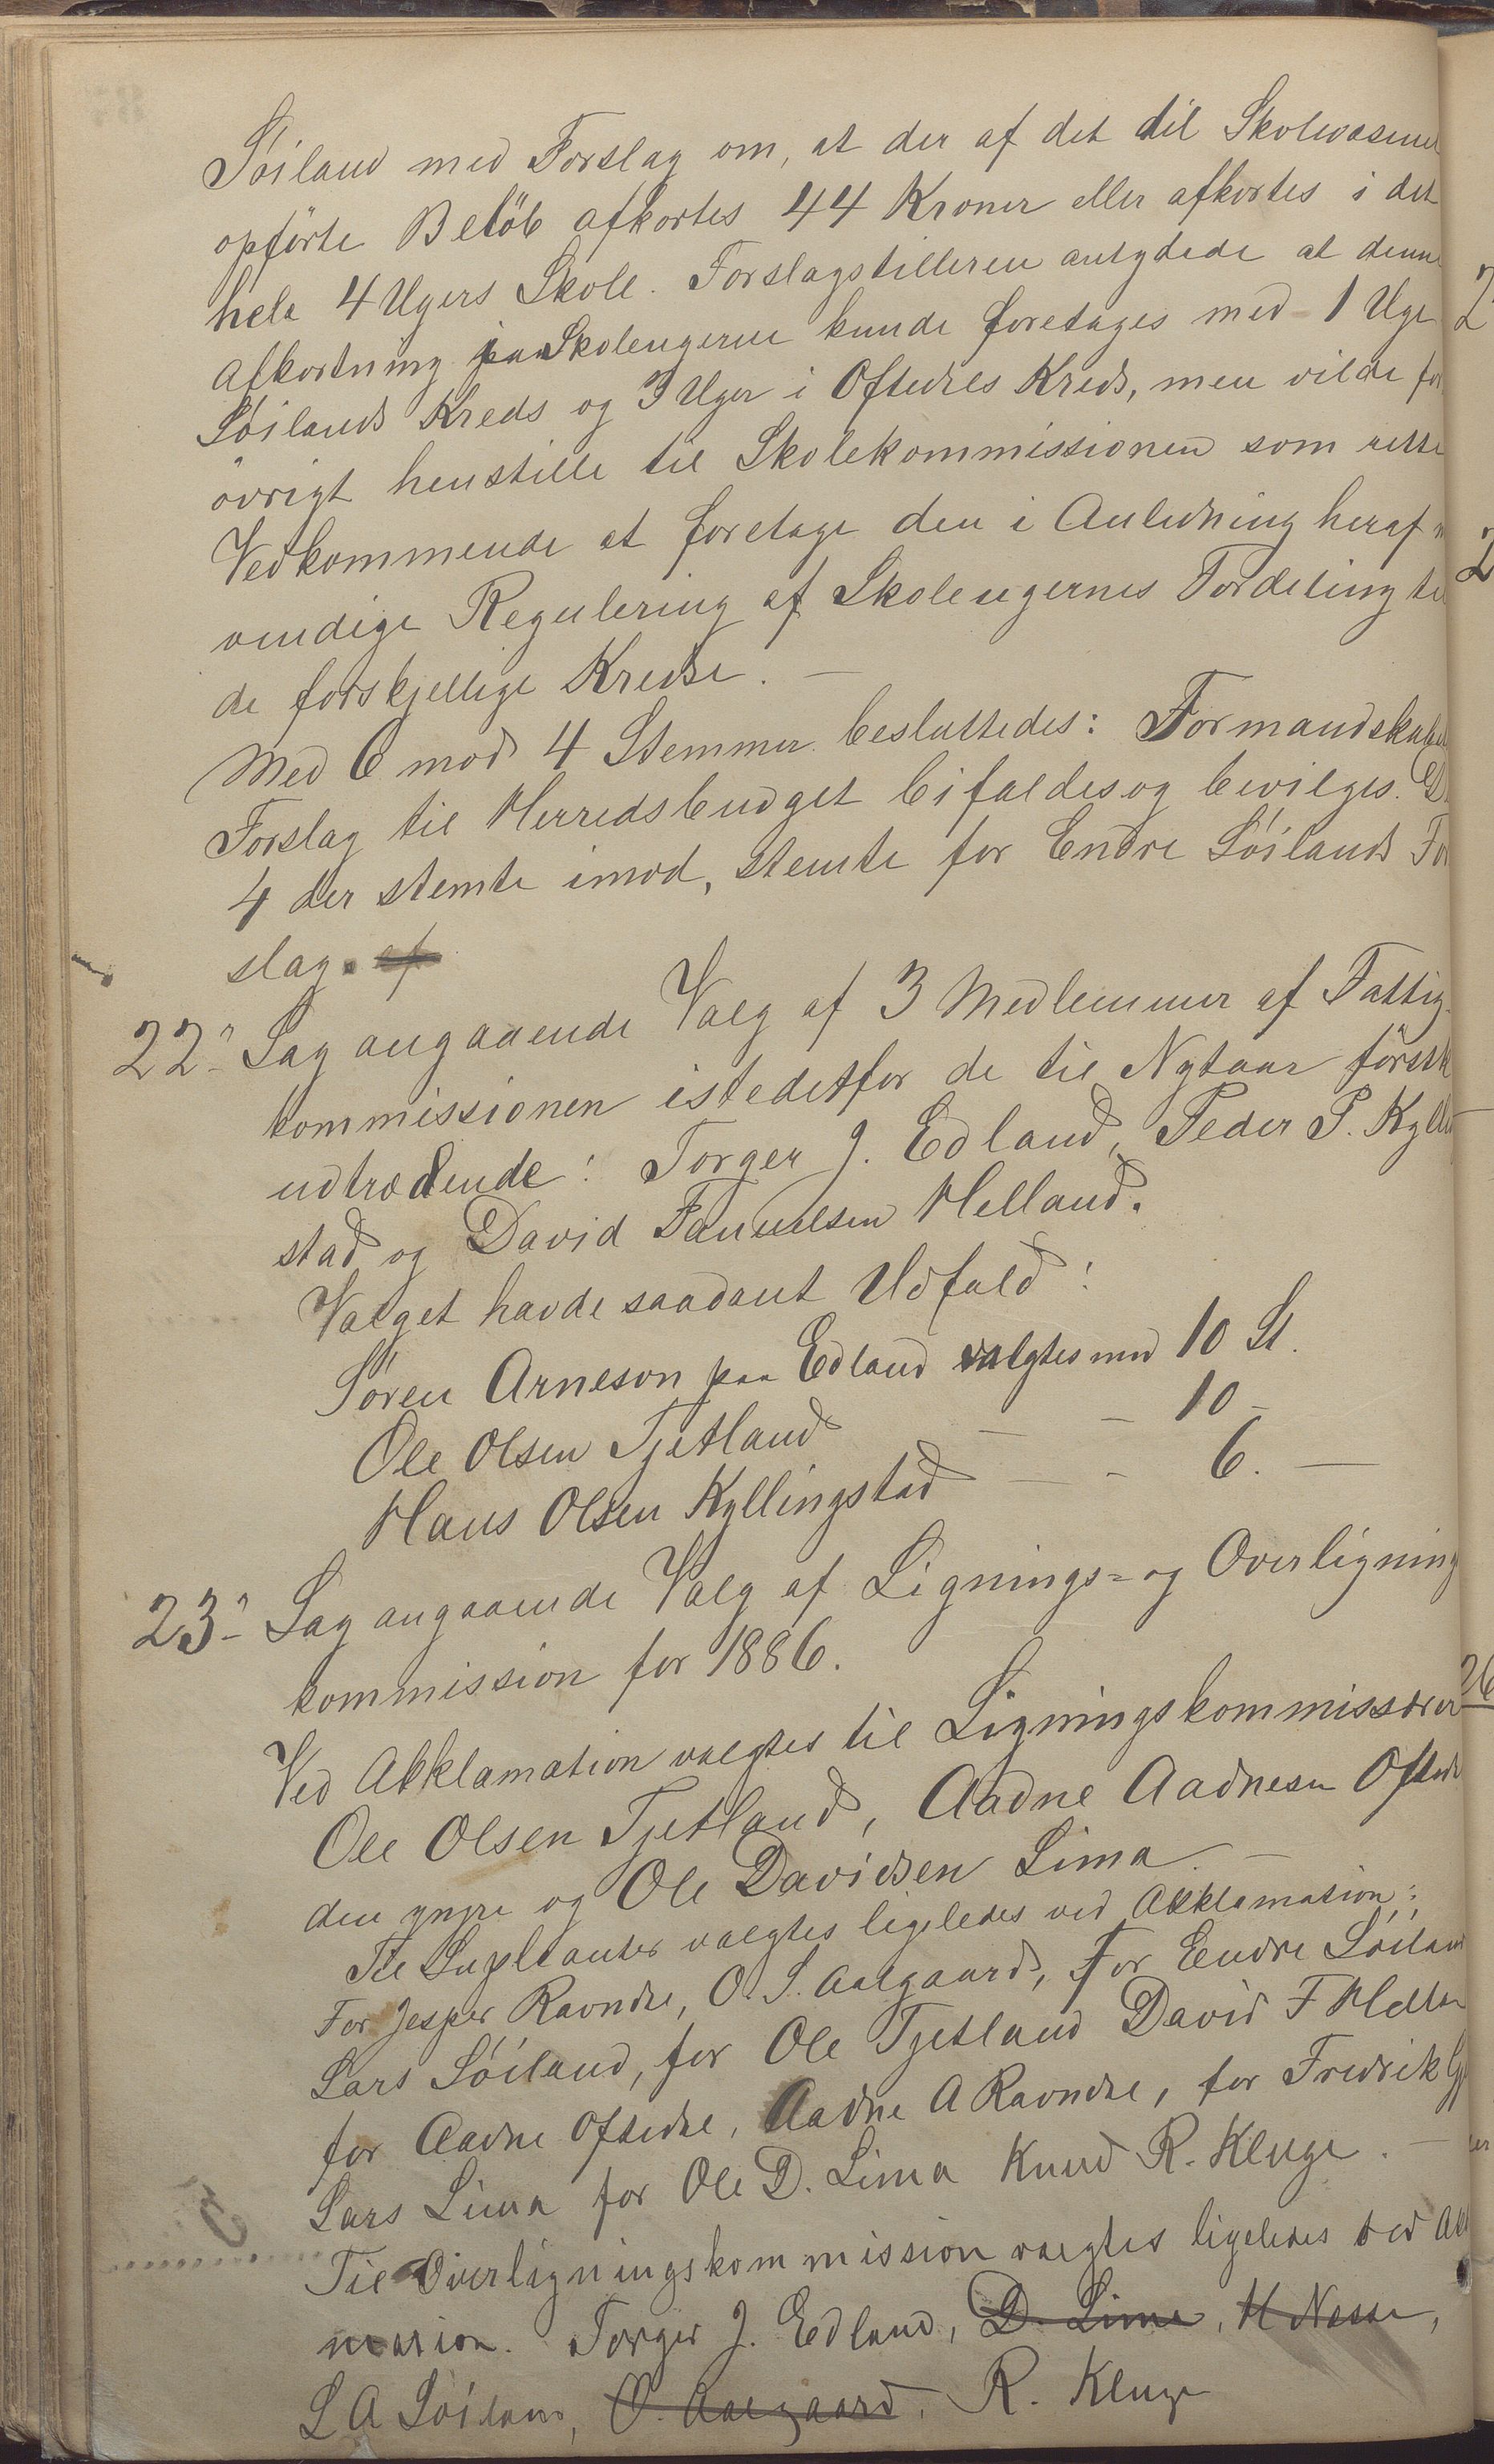 Söiland med Forslag om, at der af det til Skolevæsenet
opførte Beløb afkortes 44 Kroner eller afkortes i det
hele 4 Ugers Skole. Forslagstilleren antydede at denne
Afkortning paa Skoleugerne kunde foretages med 1 Uge
Söilands Kreds og 3 Uger i Oftedals Kreds, men vilde for
övrigt henstille til Skolekommissionen som rette
Vedkommende at foretage den i Anledning heraf n
vendige Regulering af Skoleugernes Fordeling til
de forskjellige Kredse. —
Med 6 mod 4 Stemmer besluttedes: Formandskabet
Forslag til Herredsbudget bifaldes og bevilges. De
4 der stemte imod, stemte for Endre Söilands For
slag. af
22. Sag angaaende Valg af 3 Medlemmer af Fattig-
kommissionen istedetfor de til Nytaar först
udtrædende: Torger J. Edland, Peder P. Kylling
stad og David Fanuelsen Helland.
Valget havde saadant Udfald:
Sören Arneson paa Edland valgtes med 10 St.
Ole Olsen Tjetland — — 10 —
Hans Olsen Kyllingstad — — 6. —
23. Sag angaaende Valg af Lignings- og Overligning
kommission for 1886.
Ved Akklamation valgtes til Ligningskommissærer
Ole Olsen Tjetland, Aadne Aadnesen Oftedal
den yngre og Ole Davidsen Lima. —
Til Suplianter valgtes ligeledes ved Akklamation:
For Jesper Ravndal, O. S. Aalgaard, For Endre Söiland
Lars Söiland, for Ole Tjetland David F Helland
for Aadne Oftedal, Aadne A Ravndal, for Fredrik
Lars Lima for Ole D. Lima Knud R. Kluge. —
Til Overligningskommission valgtes ligeledes ved Akk
mation. Torger J. Edland, D. Lima, H Nesse,
L A Söiland, O. Aalgaard, R. Kluge